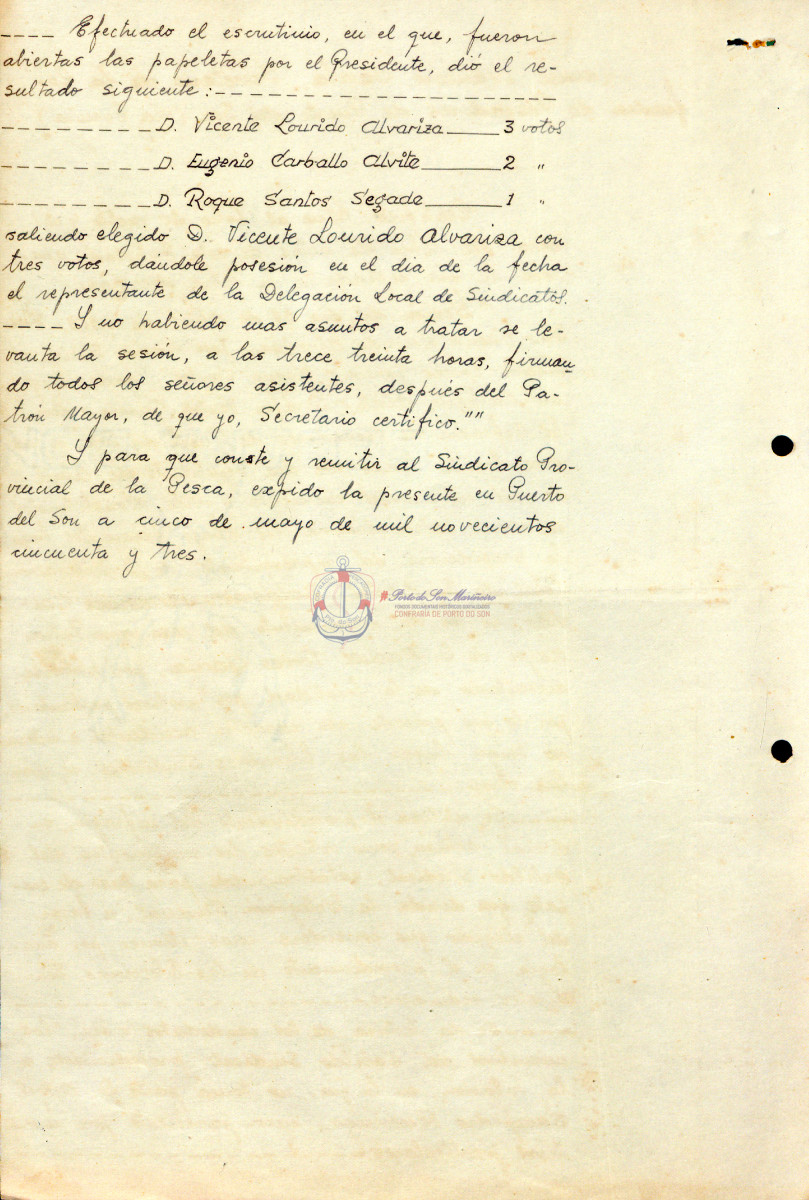 ---- Efectuado el escrutinio, en el que, fueron
abiertas las papeletas por el Presidente, dió el re-
sultado siguiente:--------------------
---------D. Vicente Lourido Alvariza_____3 votos
---------D. Eugenio Carballo Alvite_______2 "
---------D. Roque Santos Segade_______1 "
saliendo elegido D. Vicente Lourido Alvariza con
tres votos, dándole posesión en el dia de la fecha
el representante de la Delegación Local de Sindicatos.
---- Y no habiendo mas asuntos a tratar se le-
vanta la sesión, a las trece treinta horas, firman
do todos los señores asistentes, después del Pa-
trón Mayor, de que yo, Secretario certifico.""
Y para que conste y remitir al Sindicato Pro-
vincial de la Pesca, expido la presente en Puerto
del Son a cinco de mayo de mil novecientos
cincuenta y tres.
#Porto do Son Mariñeiro
FONDOS DOCUMENTAIS HISTÓRICOS DIXITALIZADOS
CONFRARÍA DE PORTO DO SON
Pto. do Son